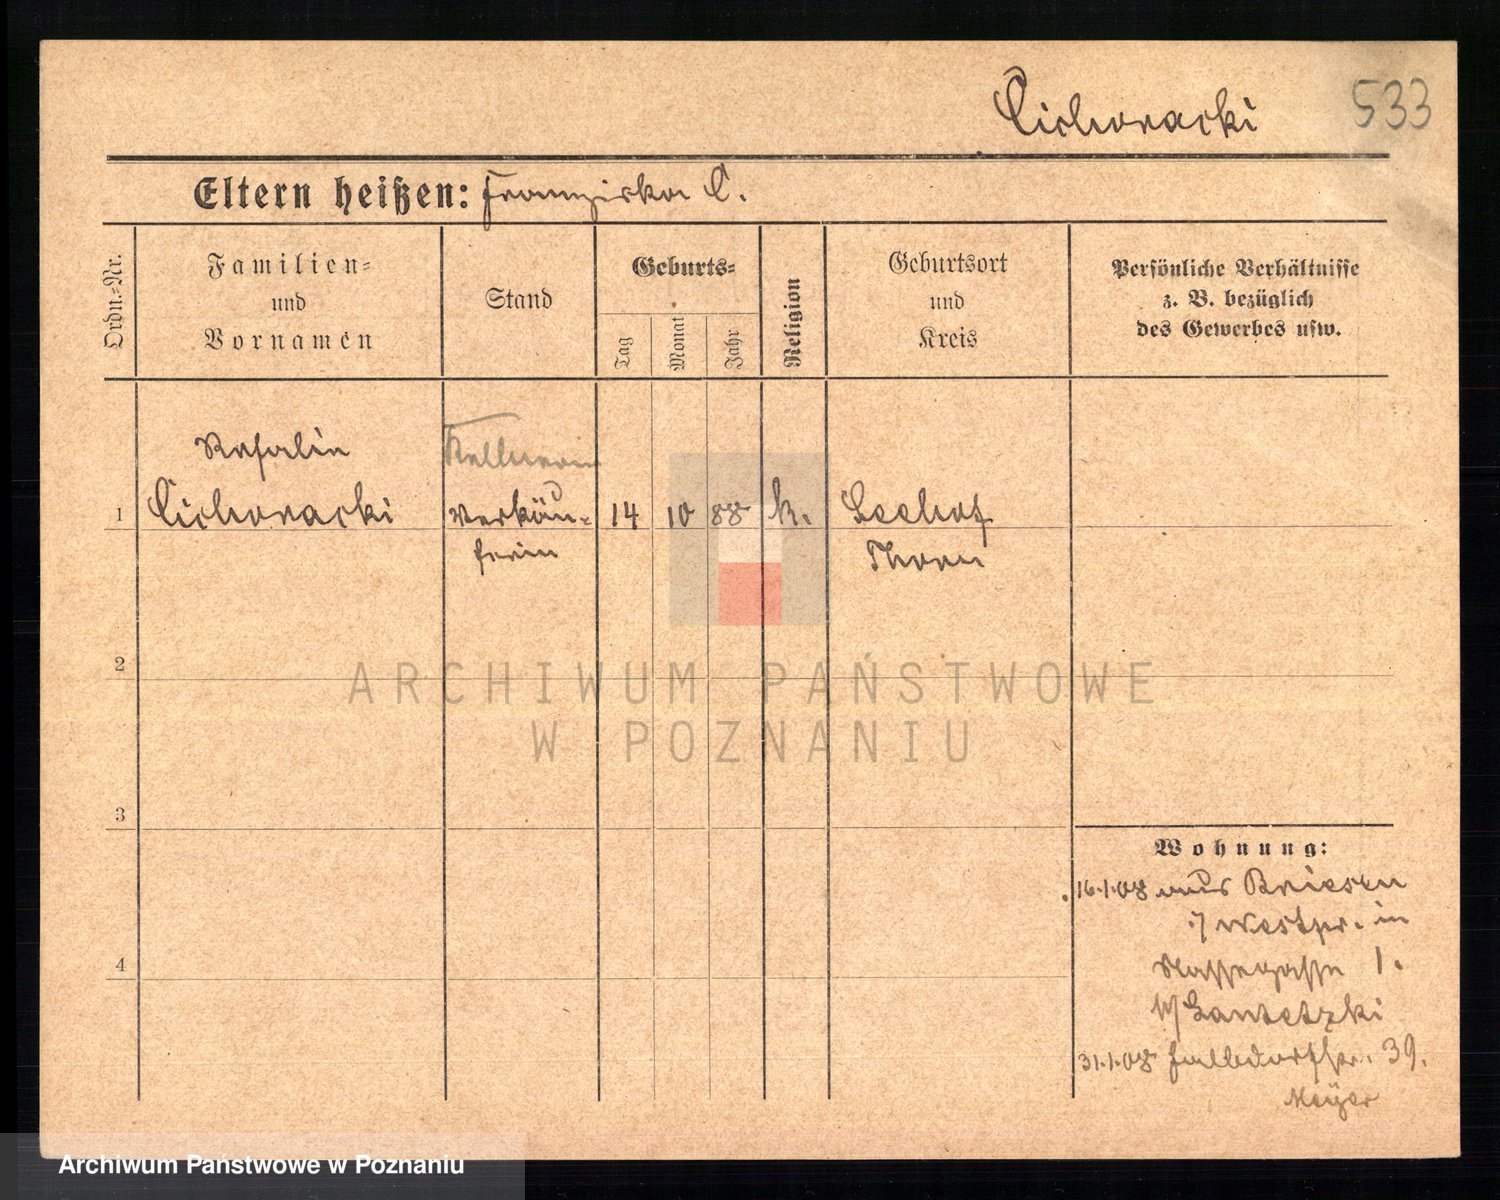 Cichoracki 533
Eltern heißen: Franziska C.
Ordn.-Nr.
Familien- und Vornamen
Stand
Geburts-
Tag
Monat
Jahr
Religion
Geburtsort und Kreis
Persönliche Verhältnisse
z. B. bezüglich
des Gewerbes usw.
Rosalie
Kellnerin
1 Cichoracki Verkäu- 14 10 88 k. Seehof
ferin Thorn
2
3
4
Wohnung:
16.1.08 aus Briesen
i/ Westpr. in
Wassergasse 1.
31.1.08 39.
Meÿer
ARCHIWUM PAŃSTWOWE
W POZNANIU
Archiwum Państwowe w Poznaniu